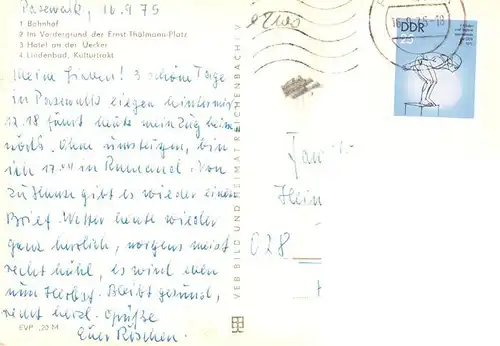 Pasewalk, 16.9.75
1 Bahnhof
2 Im Vordergrund der Ernst-Thälmann-Platz
3 Hotel an der Uecker
4 Lindenbad, Kulturtrakt
Meine Lieben! 3 schöne Tage
in Pasewalk liegen hinter mir
12.18 fährt heute mein Zug heim
wärts. Ohne umsteigen, bin
ich 17.00 in
zu Hause gibt es wieder einen
Brief. Wetter heute wieder
ganz herrlich, morgens meist
recht kühl, es wird eben
nun Herbst. Bleibt gesund,
recht herzl. Grüße
Euer Röschen.
EVP -,20 M
VEB BILD UND HEIMAT REICHENBACH I. V.
16.9.75-18
DDR
25
Fam
Hein
628